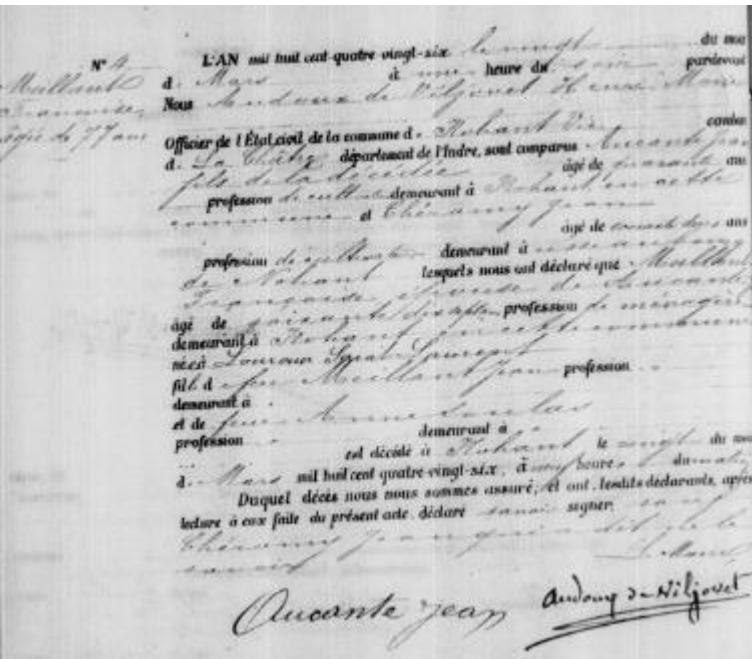 N° 4
Meillant
Françoise
âgée de 77 ans
L'AN mil huit cent-quatre vingt-six le vingt du mois
d. Mars à une heure du soir pardevant
Nous Audoux de Viljovet Henri Marie
Officier de l'État civil de la commune d. Nohant Vic canton
d. La Châtre département de l'Indre, sont comparus Aucante Jean
fils de la décédée âgé de quarante ans
profession de cultivateur demeurant à Nohant en cette
commune et Chéramy Jean
âgé de soixante deux ans
profession de demeurant à
de Nohant lesquels nous ont déclaré que Meillant
Françoise épouse de Aucante
âgé de soixante dix sept ans profession de ménagère
demeurant à Nohant en cette commune
né à Lourouer Saint Laurent
fil d feu Meillant Jean profession
demeurant à
et de feue Anne Soulas
profession demeurant à
est décédé à Nohant le vingt du mois
d. Mars mil huit cent quatre-vingt-six, à heure du matin
Duquel décès nous nous sommes assuré, et ont, lesdits déclarants, après
lecture à eux faite du présent acte, déclaré savoir signer,
Chéramy Jean qui a dit ne le
savoir Le Maire
Aucante Jean Audoux de Viljovet